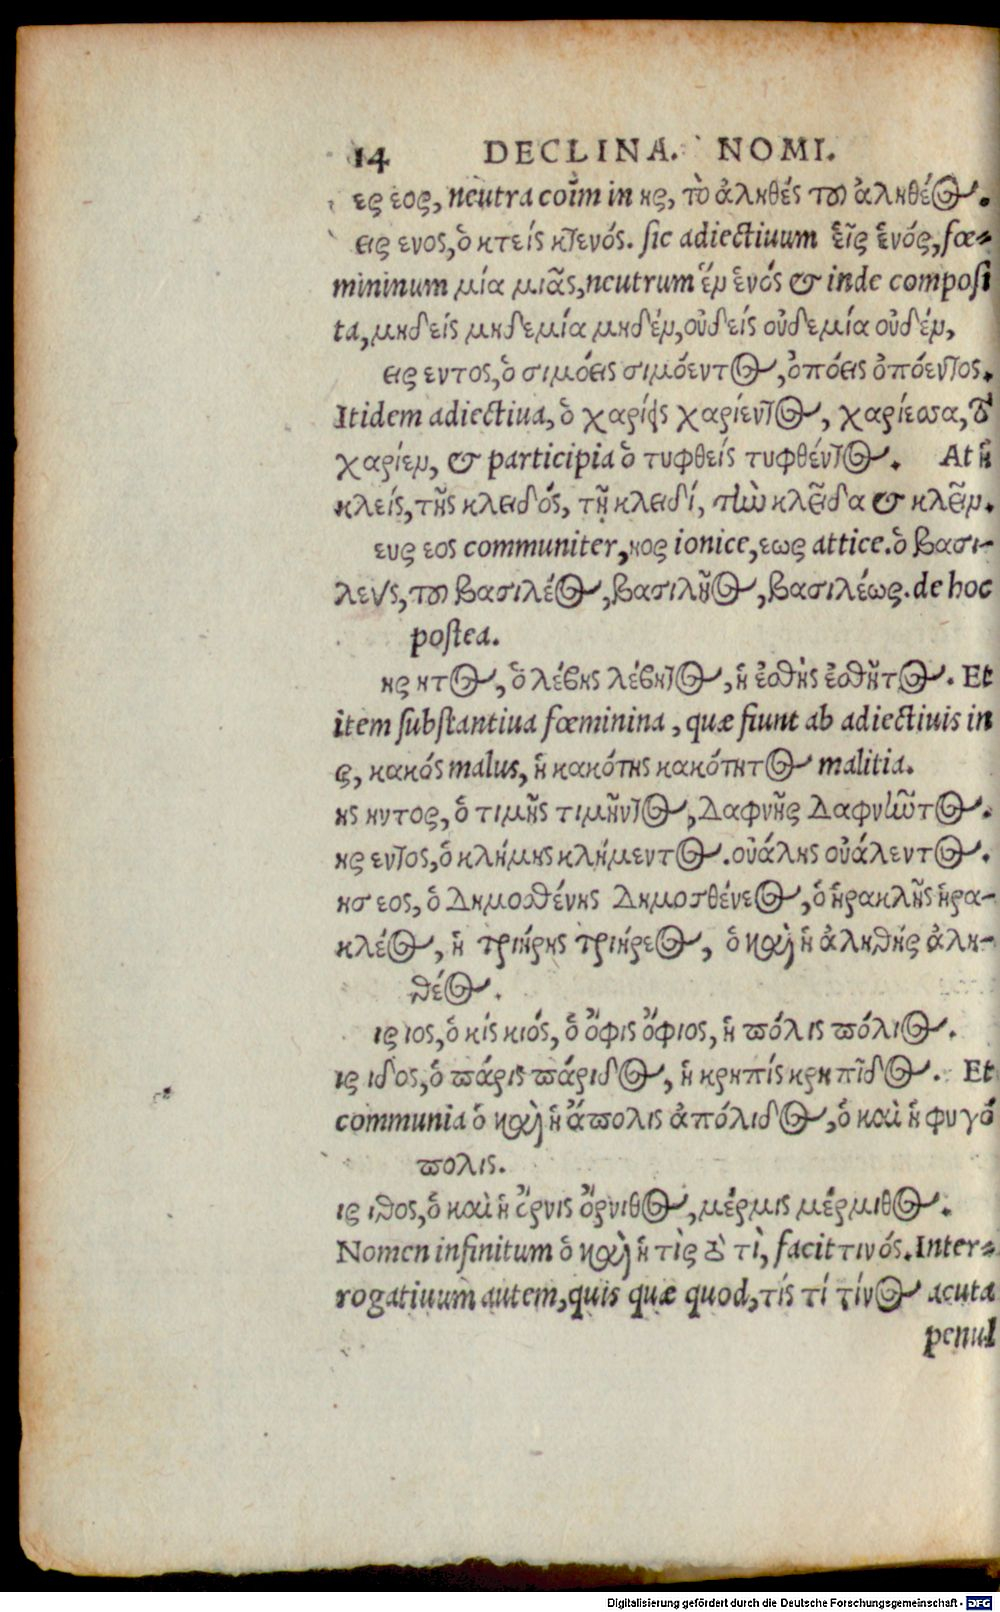 14 DECLINA. NOMI.
ες εος, neutra coi͂m in ης, τὸ ἀληθές τοῦ ἀληθέος.
εις ενος, ὁ κτείς κτενός. sic adiectiuum εἷς ἑνός, fœ-
mininum μία μιᾶς, neutrum ἕν ἑνός & inde composi
ta, μηδείς μηδεμία μηδέν, οὐδείς οὐδεμία οὐδέν,
εις εντος, ὁ σιμόεις σιμόεντος, ὀπόεις ὀπόεντος.
Itidem adiectiua, ὁ χαρίεις χαρίεντος, χαρίεσσα, τὸ
χαρίεν, & participia ὁ τυφθείς τυφθέντος. At ἡ
κλείς, τῆς κλειδός, τῇ κλειδί, τὼ κλεῖδα & κλεῖν.
ευς εος communiter, ηος ionice, εως attice. ὁ βασι-
λεύς, τοῦ βασιλέος, βασιλῆος, βασιλέως. de hoc
postea.
ης ητος, ὁ λέβης λέβητος, ἡ ἐσθής ἐσθῆτος. Et
item substantiua fœminina, quæ fiunt ab adiectiuis in
ς, κακός malus, ἡ κακότης κακότητος malitia.
ης ηντος, ὁ τιμῆς τιμῆντος, Δαφνῆς Δαφνῆντος.
ης εντος, ὁ κλήμης κλήμεντος. οὐάλης οὐάλεντος.
ησ εος, ὁ Δημοσθένης Δημοσθένεος, ὁ ἡρακλῆς ἡρα-
κλέος, ἡ τριήρης τριήρεος, ὁ καὶ ἡ ἀληθής ἀλη-
θέος.
ις ιος, ὁ κίς κιός, ὁ ὄφις ὄφιος, ἡ πόλις πόλιος.
ις ιδος, ὁ πάρις πάριδος, ἡ κρηπίς κρηπῖδος. Et
communia ὁ καὶ ἡ ἄπολις ἀπόλιδος, ὁ καὶ ἡ φυγό
πολις.
ις ιθος, ὁ καὶ ἡ ὄρνις ὄρνιθος, μέρμις μέρμιθος.
Nomen infinitum ὁ καὶ ἡ τὶς τὸ τὶ, facit τινός. Inter-
rogatiuum autem, quis quæ quod, τίς τί τίνος acuta
penul
Digitalisierung gefördert durch die Deutsche Forschungsgemeinschaft - DFG